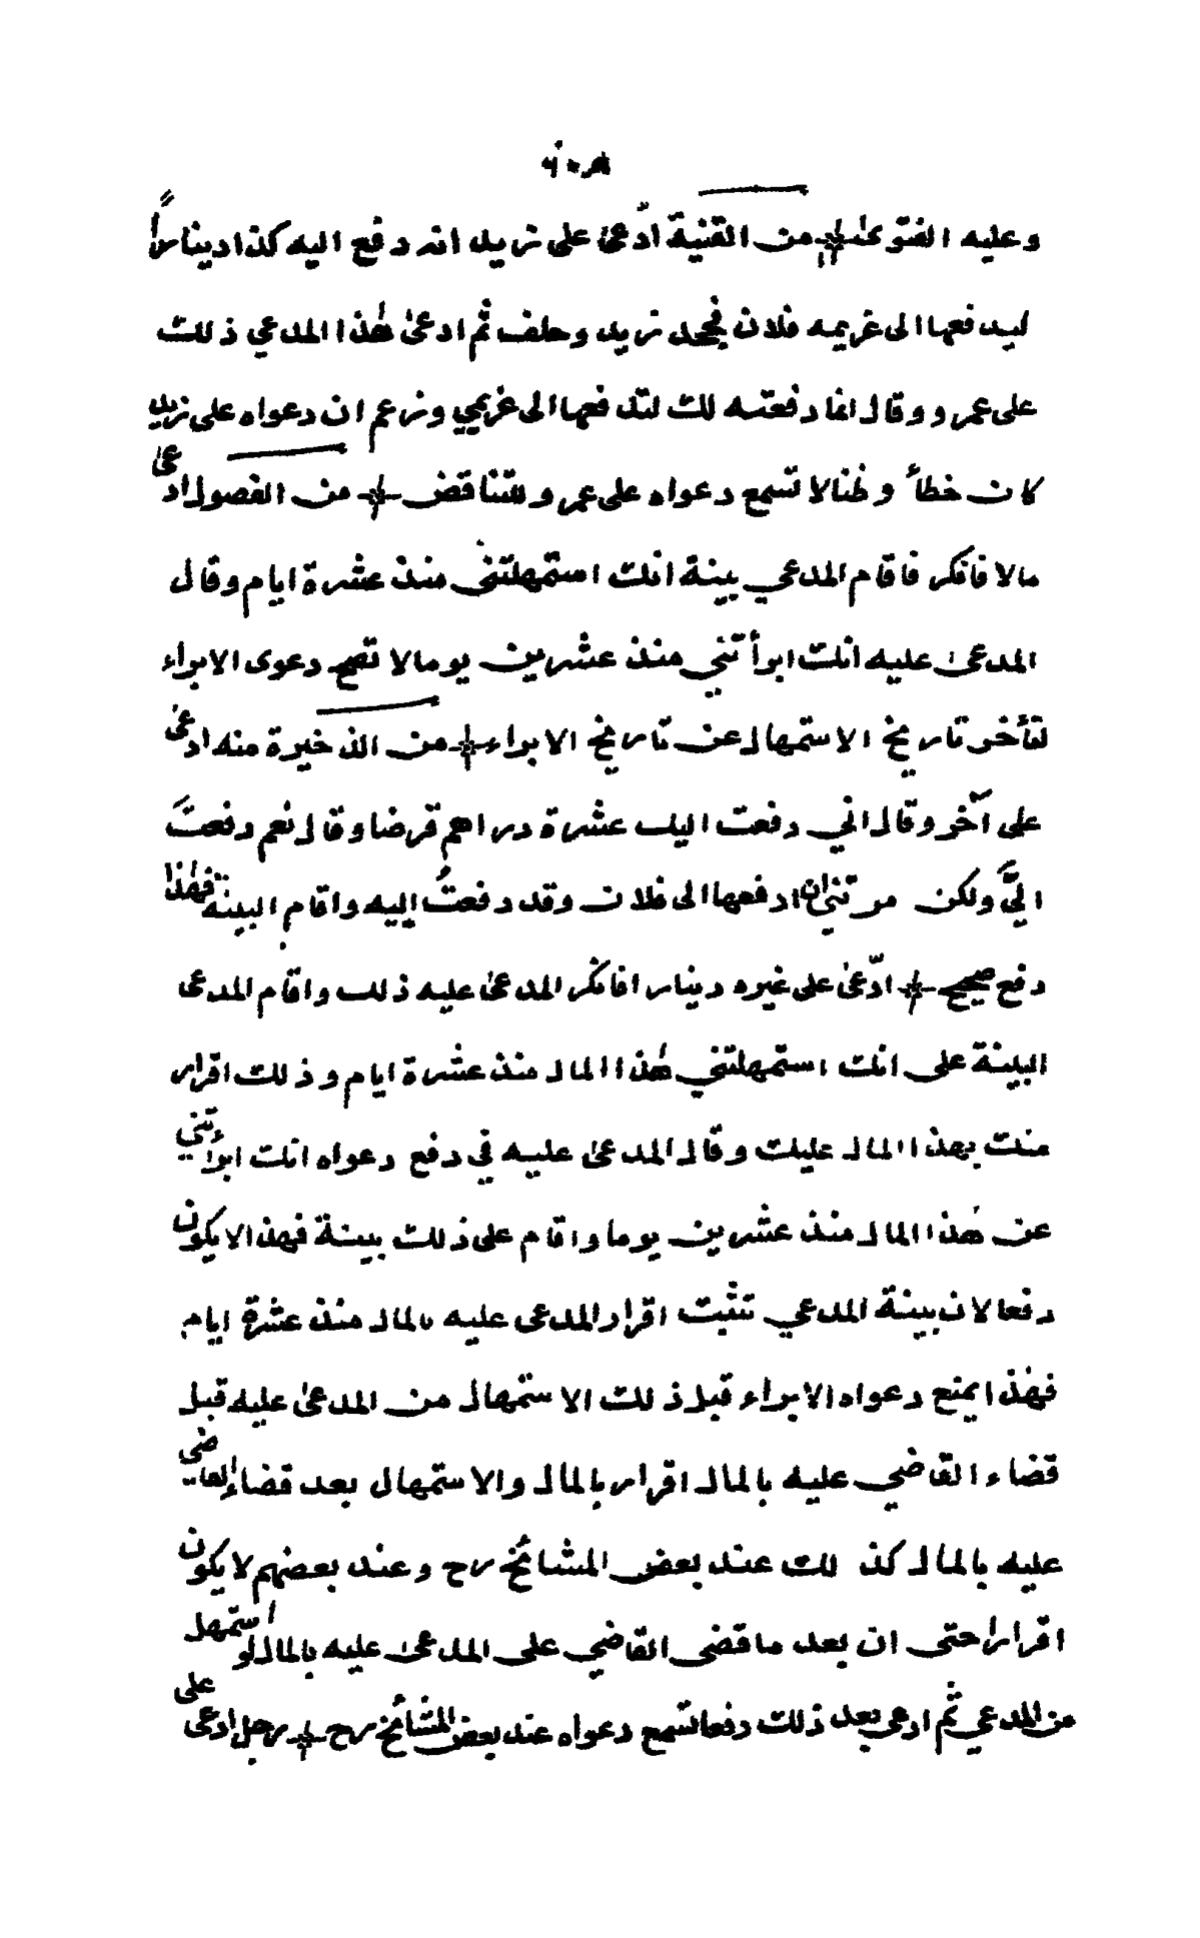 وعليه الفتوىٰ من القنية ادّعىٰ على زيد انه دفع اليه كذا ديناراً
ليدفعها الى غريمه فلان فجحد زيد وحلف ثم ادعىٰ هٰذا المدعي ذلك
على عمرو وقال انما دفعته لك لتدفعها الى غريمي وزعم ان دعواه على زيد
كان خطأ وظنا لا تسمع دعواه على عمرو للتناقض من الفصول ادعىٰ
مالا فانكر فاقام المدعي بينة انك استمهلتني منذ عشرة ايام وقال
المدعىٰ عليه انك ابرأتني منذ عشرين يوما لا تصح دعوى الابراء
لتأخر تاريخ الاستمهال عن تاريخ الابراء من الذخيرة منه ادعىٰ
على آخر وقال اني دفعت اليك عشرة دراهم قرضا وقال نعم دفعتَ
اليَّ ولكن مرتني ان ادفعها الى فلان وقد دفعتُ اليه واقام البينة فهٰذا
دفع صحيح ادّعىٰ على غيره دينارا فانكر المدعىٰ عليه ذلك واقام المدعى
البينة على انك استمهلتني هٰذا المال منذ عشرة ايام وذلك اقرار
منك بهذا المال عليك وقال المدعىٰ عليه في دفع دعواه انك ابرأتني
عن هٰذا المال منذ عشرين يوما واقام على ذلك بينة فهذا لا يكون
دفعا لان بينة المدعي تثبت اقرار المدعى عليه بالمال منذ عشرة ايام
فهٰذا يمنع دعواه الابراء قبل ذلك الاستمهال من المدعىٰ عليه قبل
قضاء القاضي عليه بالمال اقرار بالمال والاستمهال بعد قضاء القاضي
عليه بالمال كذلك عند بعض المشائخ رح وعند بعضهم لا يكون
اقرارا حتى ان بعد ما قضى القاضي على المدعىٰ عليه بالمال لو استمهل
من المدعي ثم ادعى بعد ذلك دفعا تسمع دعواه عند بعض المشائخ رح رجل ادعى على